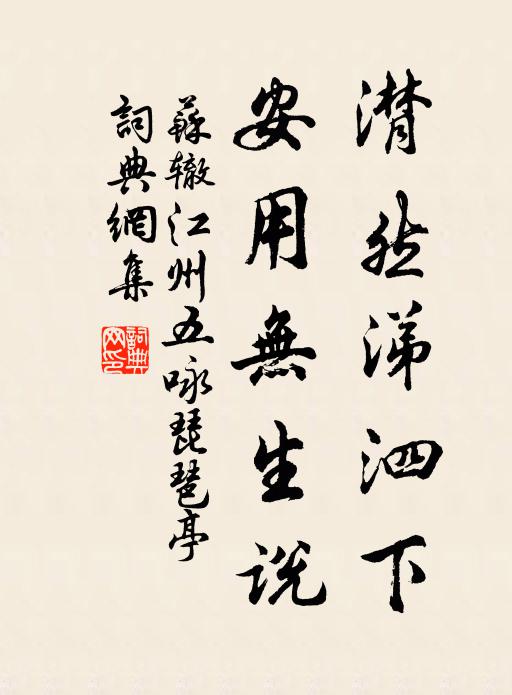 潸然涕泗下
安用無生説
蘇辙江州五咏琵琶亭
詞典網集
詞典網印